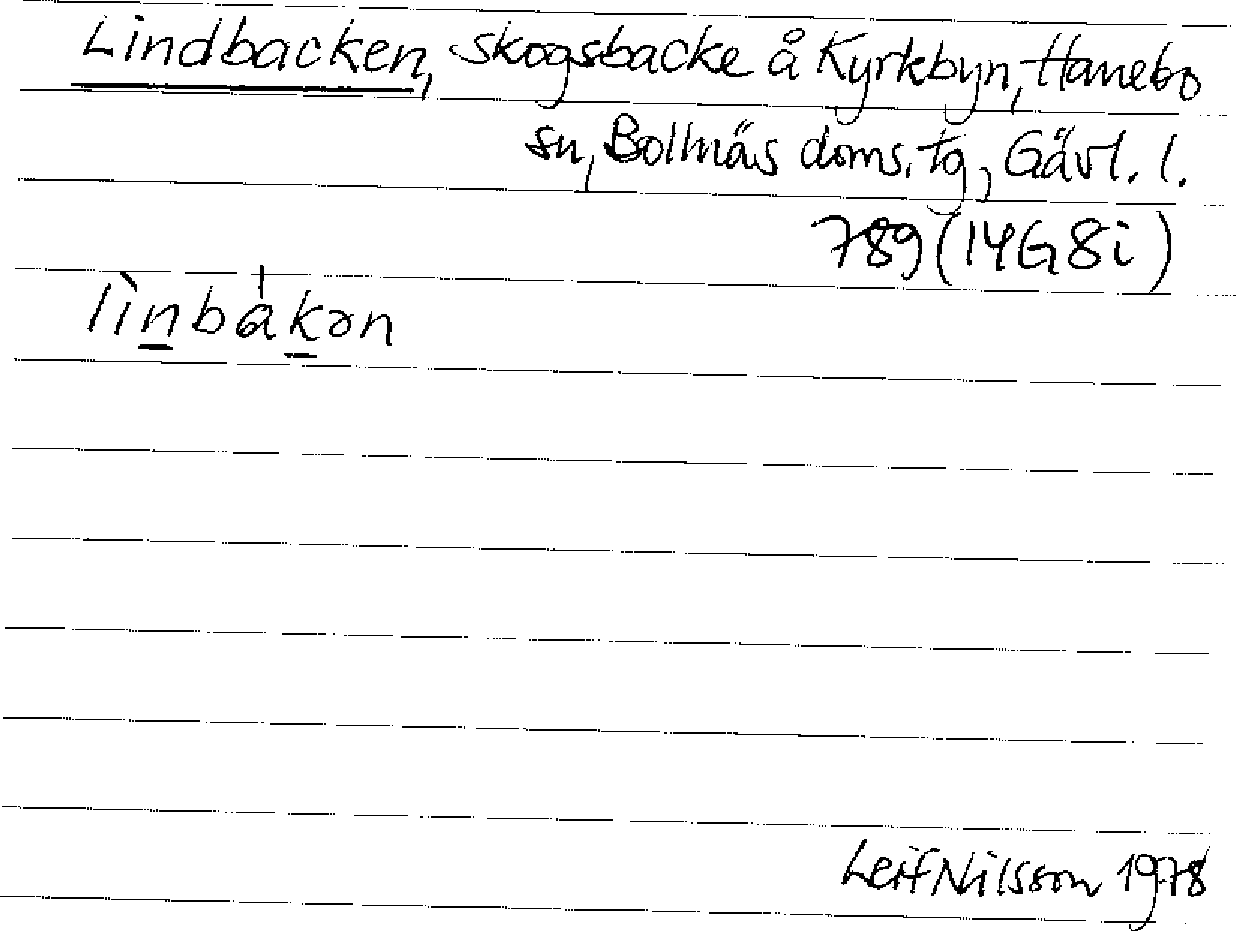 Lindbacken, skogsbacke å Kyrkbyn, Hanebo
sn, Bollnäs doms. tg, Gävl. l.
789 (14G8i)
lìnbákən
Leif Nilsson 1978